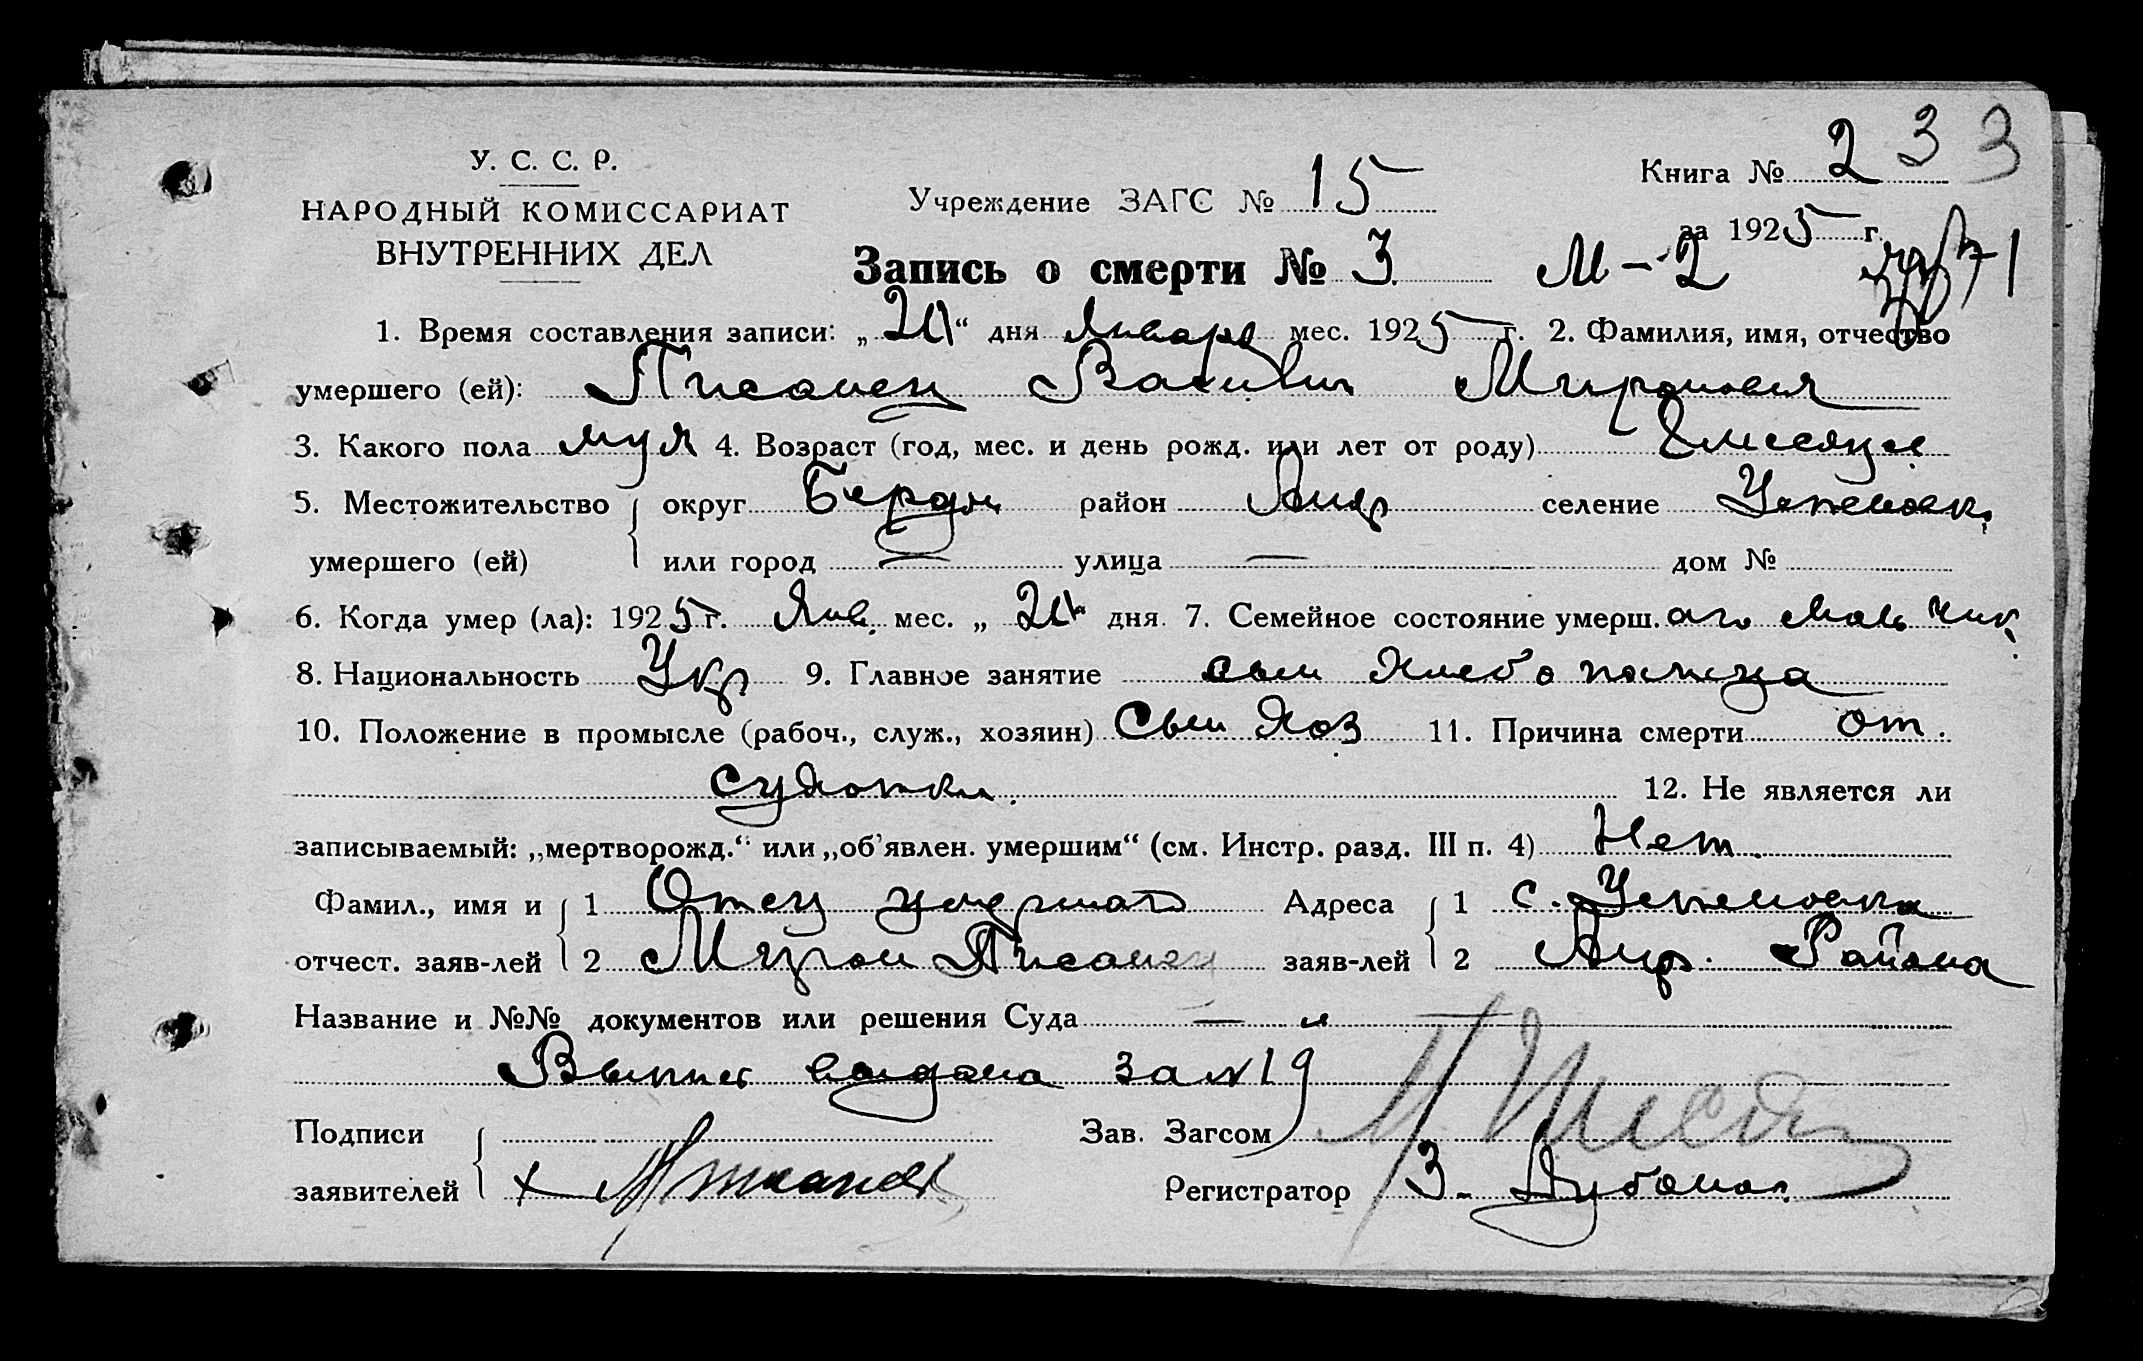 233
У. С. С. Р.
НАРОДНЫЙ КОМИССАРИАТ
ВНУТРЕННИХ ДЕЛ
Учреждение ЗАГС № 15
Книга № 2
за 1925 г.
Запись о смерти № 3 М-2
1. Время составления записи: „ “ дня Января мес. 1925 г. 2. Фамилия, имя, отчество
умершего (ей): Писанец Василий Миронович
3. Какого пола муж 4. Возраст (год, мес. и день рожд. или лет от роду) месяца
5. Местожительство округ Бердян район Андр селение Успеновк.
умершего (ей) или город — улица — дом №
6. Когда умер (ла): 1925 г. Янв. мес. „ “ дня. 7. Семейное состояние умерш. ого мальчик
8. Национальность Укр 9. Главное занятие сын хлебопашца
10. Положение в промысле (рабоч., служ., хозяин) Сын хоз 11. Причина смерти от
сухотки. 12. Не является ли
записываемый: „мертворожд.“ или „об'явлен. умершим“ (см. Инстр. разд. III п. 4) Нет.
Фамил., имя и 1 Отец умершого Адреса 1 с. Успеновка
отчест. заяв-лей 2 Мирон Писанец заяв-лей 2 Андр. Района
Название и №№ документов или решения Суда —
Выпись выдана за № 19
Подписи Зав. Загсом
заявителей Писанец Регистратор З.